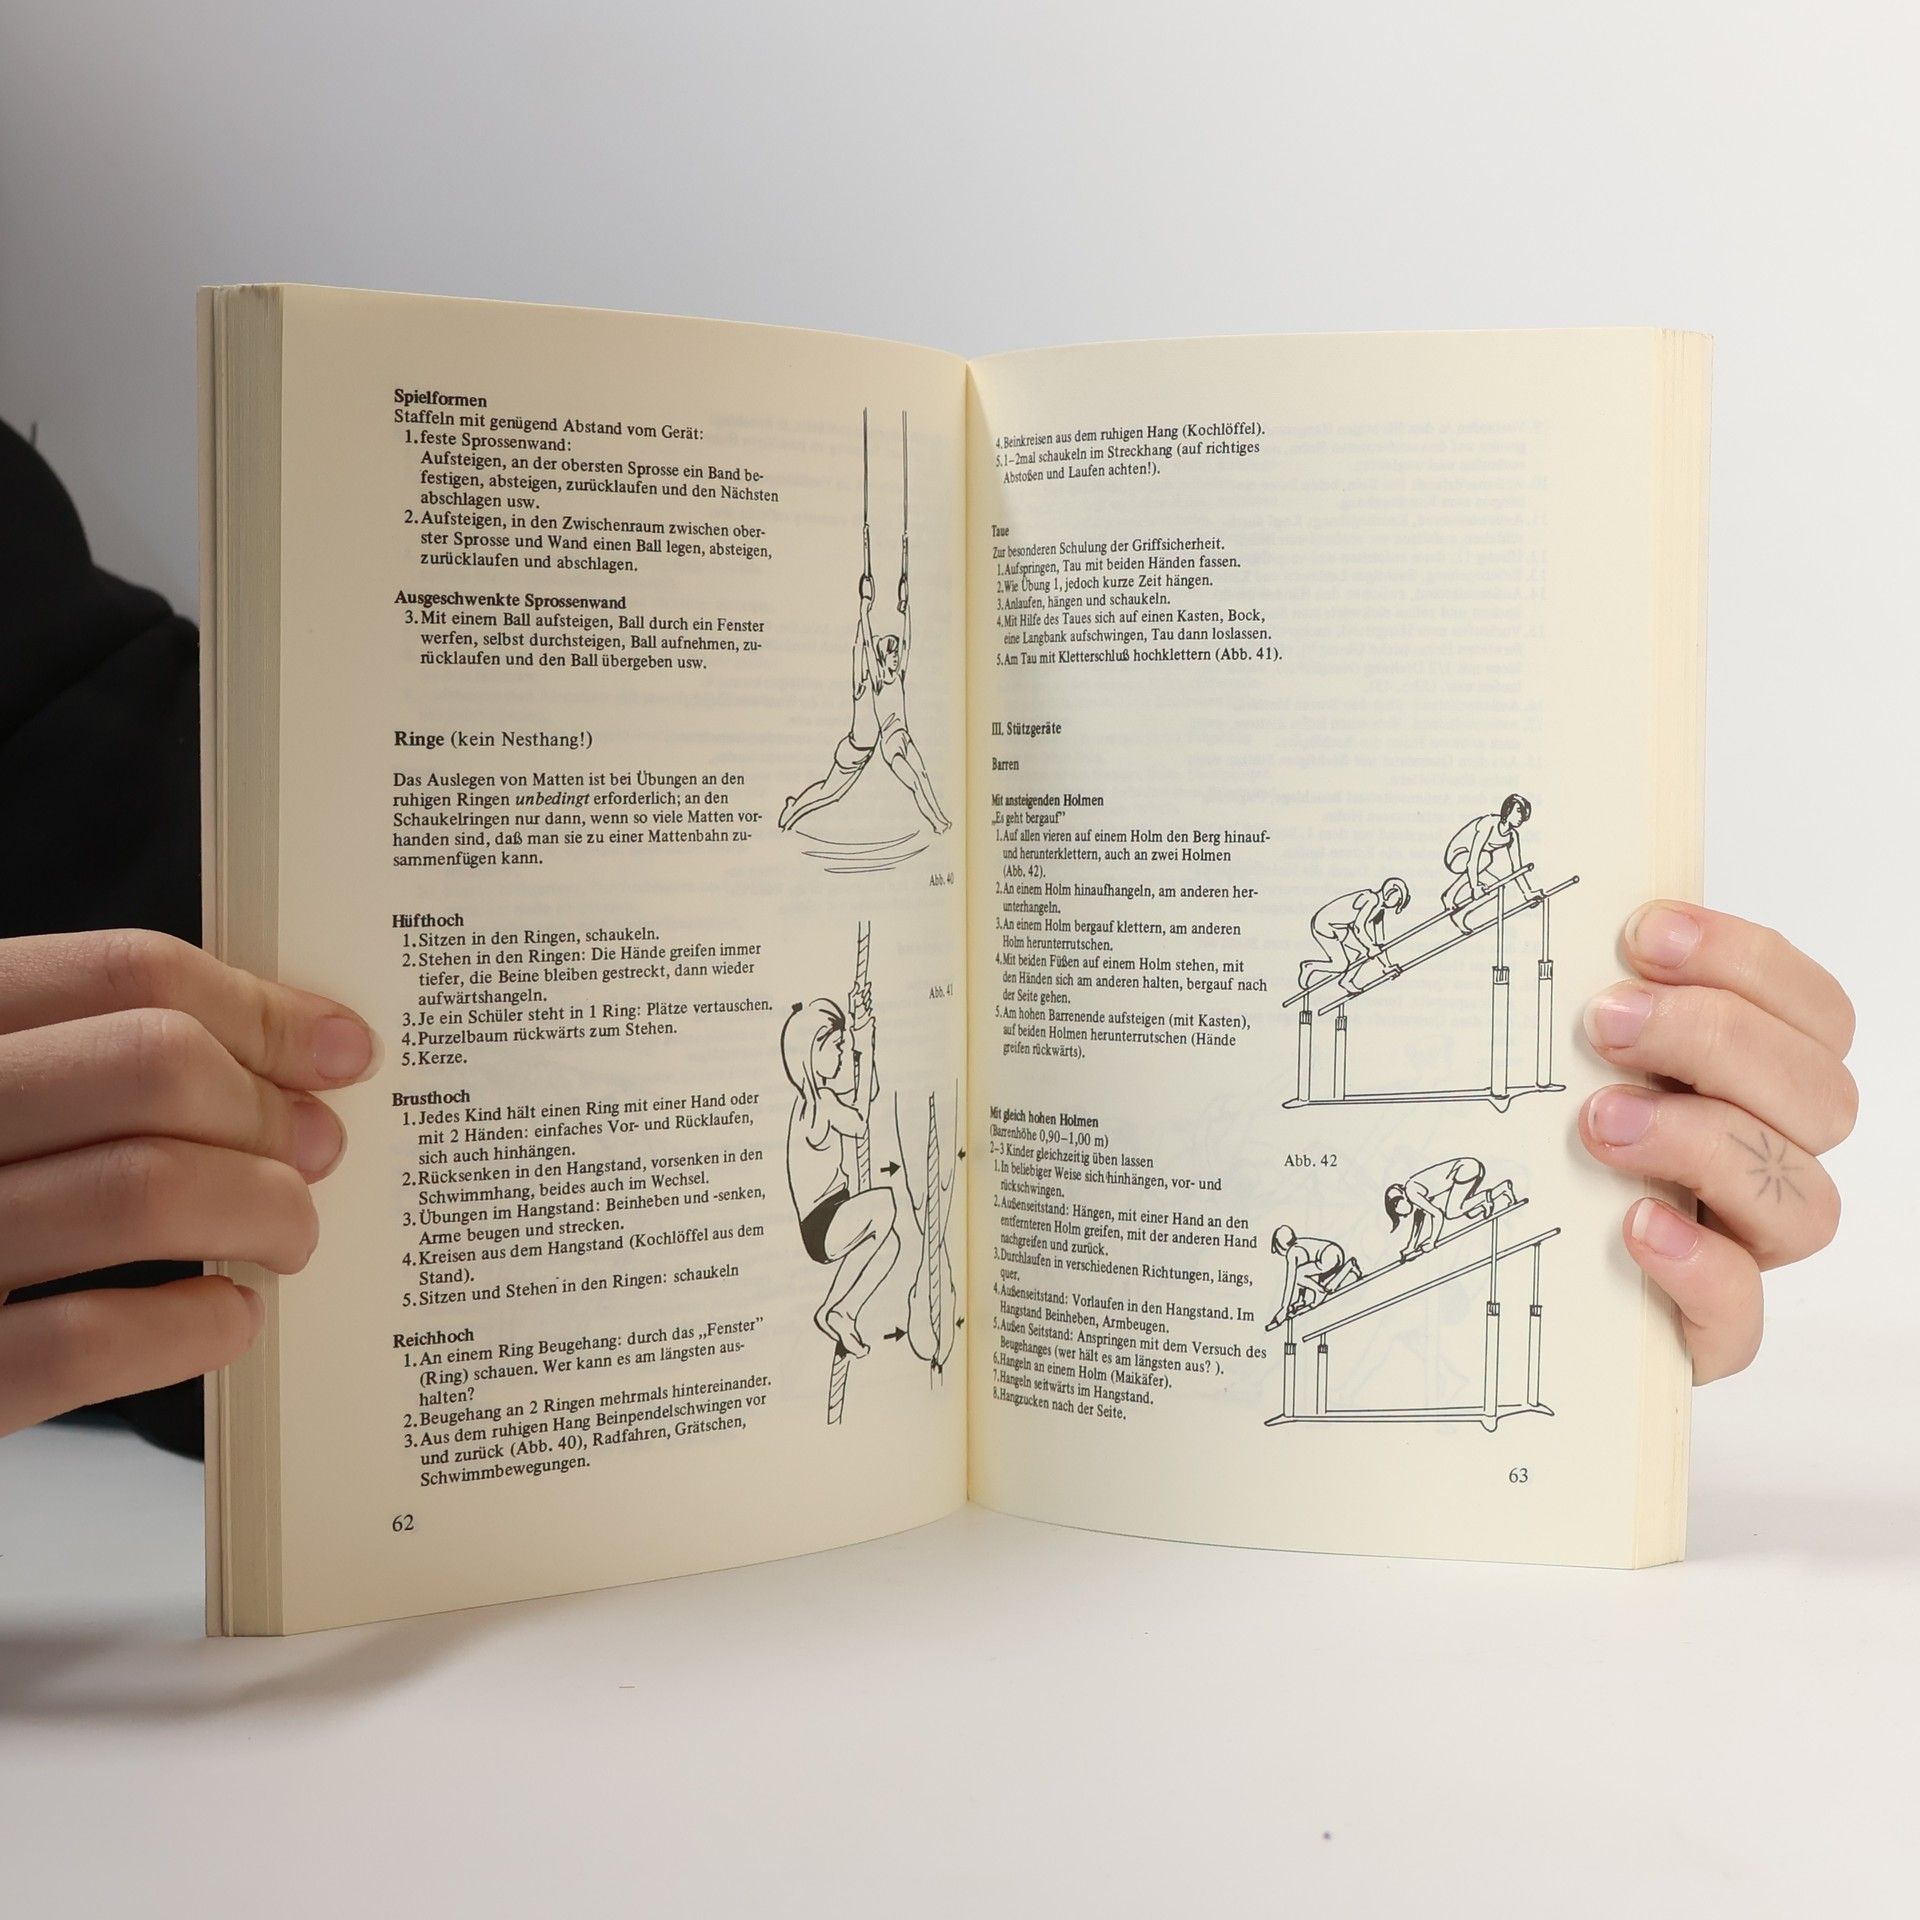 Spielformen
Staffeln mit genügend Abstand vom Gerät:
1. feste Sprossenwand:
Aufsteigen, an der obersten Sprosse ein Band be-
festigen, absteigen, zurücklaufen und den Nächsten
abschlagen usw.
2. Aufsteigen, in den Zwischenraum zwischen ober-
ster Sprosse und Wand einen Ball legen, absteigen,
zurücklaufen und abschlagen.
Ausgeschwenkte Sprossenwand
3. Mit einem Ball aufsteigen, Ball durch ein Fenster
werfen, selbst durchsteigen, Ball aufnehmen, zu-
rücklaufen und den Ball übergeben usw.
Ringe (kein Nesthang!)
Das Auslegen von Matten ist bei Übungen an den
ruhigen Ringen unbedingt erforderlich; an den
Schaukelringen nur dann, wenn so viele Matten vor-
handen sind, daß man sie zu einer Mattenbahn zu-
sammenfügen kann.
Abb. 40
Hüfthoch
1. Sitzen in den Ringen, schaukeln.
2. Stehen in den Ringen: Die Hände greifen immer
tiefer, die Beine bleiben gestreckt, dann wieder
aufwärtshangeln.
3. Je ein Schüler steht in 1 Ring: Plätze vertauschen.
4. Purzelbaum rückwärts zum Stehen.
5. Kerze.
Abb. 41
Brusthoch
1. Jedes Kind hält einen Ring mit einer Hand oder
mit 2 Händen: einfaches Vor- und Rücklaufen,
sich auch hinhängen.
2. Rücksenken in den Hangstand, vorsenken in den
Schwimmhang, beides auch im Wechsel.
3. Übungen im Hangstand: Beinheben und -senken,
Arme beugen und strecken.
4. Kreisen aus dem Hangstand (Kochlöffel aus dem
Stand).
5. Sitzen und Stehen in den Ringen: schaukeln
Reichhoch
1. An einem Ring Beugehang: durch das „Fenster”
(Ring) schauen. Wer kann es am längsten aus-
halten?
2. Beugehang an 2 Ringen mehrmals hintereinander.
3. Aus dem ruhigen Hang Beinpendelschwingen vor
und zurück (Abb. 40), Radfahren, Grätschen,
Schwimmbewegungen.
62
4. Beinkreisen aus dem ruhigen Hang (Kochlöffel).
5. 1–2mal schaukeln im Streckhang (auf richtiges
Abstoßen und Laufen achten!).
Taue
Zur besonderen Schulung der Griffsicherheit.
1. Aufspringen, Tau mit beiden Händen fassen.
2. Wie Übung 1, jedoch kurze Zeit hängen.
3. Anlaufen, hängen und schaukeln.
4. Mit Hilfe des Taues sich auf einen Kasten, Bock,
eine Langbank aufschwingen, Tau dann loslassen.
5. Am Tau mit Kletterschluß hochklettern (Abb. 41).
III. Stützgeräte
Barren
Mit ansteigenden Holmen
„Es geht bergauf”
1. Auf allen vieren auf einem Holm den Berg hinauf-
und herunterklettern, auch an zwei Holmen
(Abb. 42).
2. An einem Holm hinaufhangeln, am anderen her-
unterhangeln.
3. An einem Holm bergauf klettern, am anderen
Holm herunterrutschen.
4. Mit beiden Füßen auf einem Holm stehen, mit
den Händen sich am anderen halten, bergauf nach
der Seite gehen.
5. Am hohen Barrenende aufsteigen (mit Kasten),
auf beiden Holmen herunterrutschen (Hände
greifen rückwärts).
Mit gleich hohen Holmen
(Barrenhöhe 0,90–1,00 m)
2–3 Kinder gleichzeitig üben lassen
1. In beliebiger Weise sich hinhängen, vor- und
rückschwingen.
2. Außenseitstand: Hängen, mit einer Hand an den
entfernteren Holm greifen, mit der anderen Hand
nachgreifen und zurück.
3. Durchlaufen in verschiedenen Richtungen, längs,
quer.
4. Außenseitstand: Vorlaufen in den Hangstand. Im
Hangstand Beinheben, Armbeugen.
5. Außen Seitstand: Anspringen mit dem Versuch des
Beugehanges (wer hält es am längsten aus? ).
6. Hangeln an einem Holm (Maikäfer).
7. Hangeln seitwärts im Hangstand.
8. Hangzucken nach der Seite.
Abb. 42
63